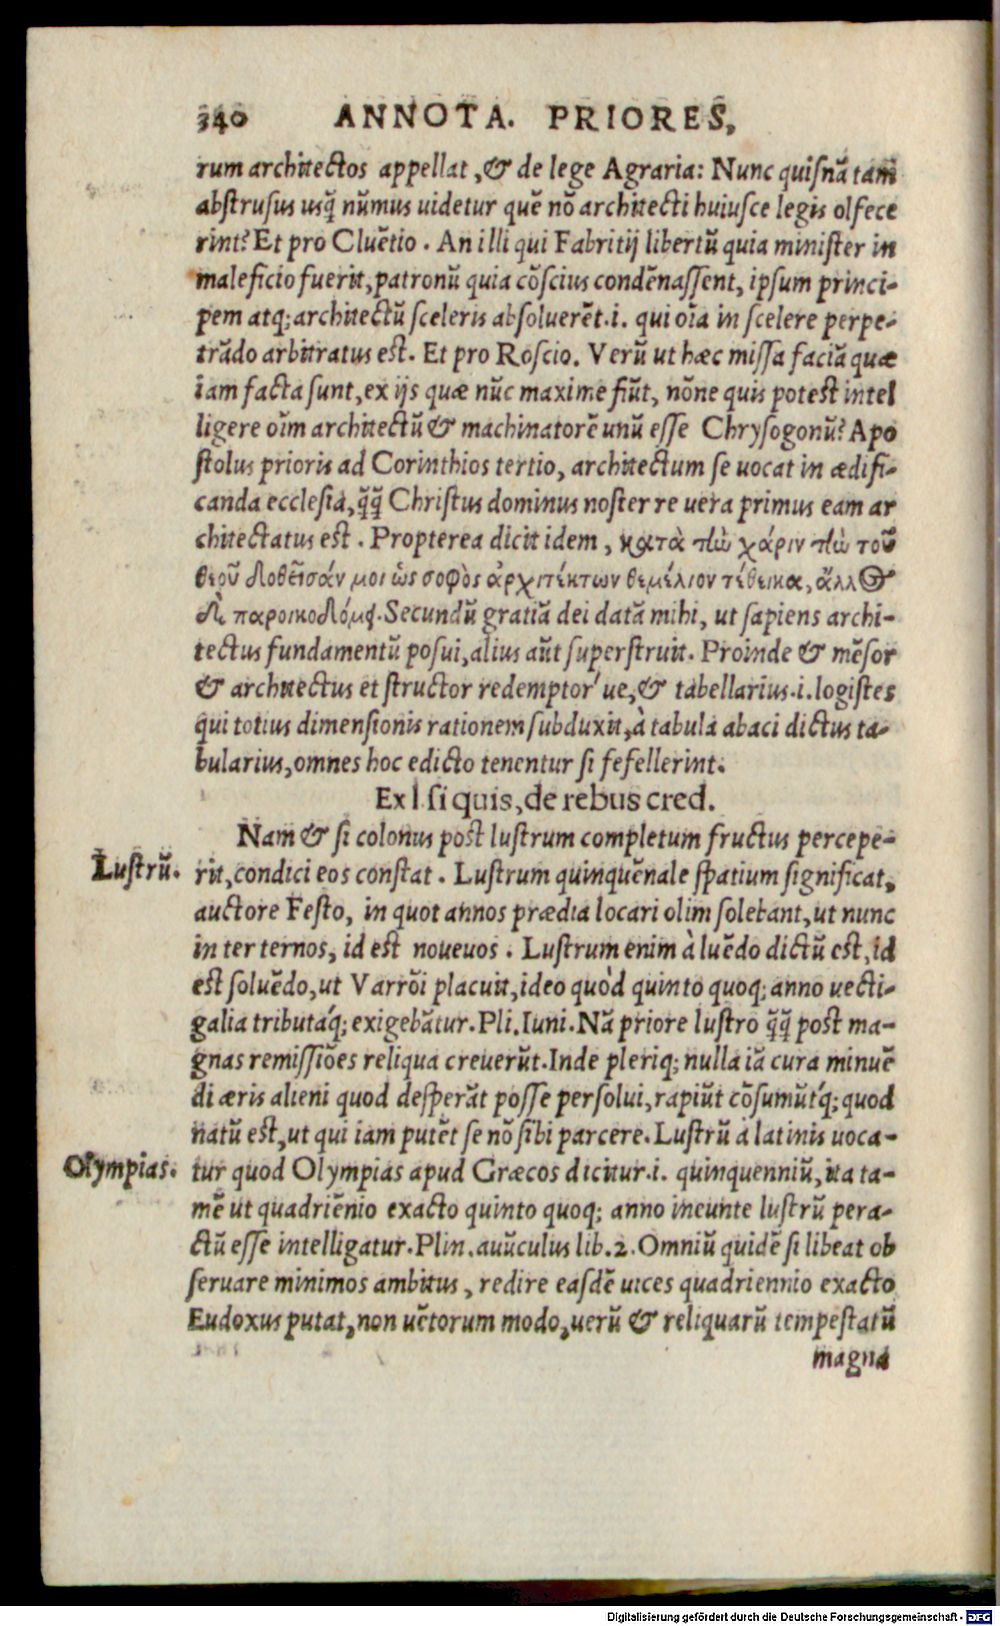 340 ANNOTA. PRIORES,
rum architectos appellat, & de lege Agraria: Nunc quisnã tam
abstrusus usq̃ nũmus uidetur quẽ nõ architecti huiusce legis olfece
rint? Et pro Cluẽtio. An illi qui Fabritij libertũ quia minister in
maleficio fuerit, patronũ quia cõscius condẽnassent, ipsum princi-
pem atq; architectũ sceleris absoluerẽt.i. qui oĩa in scelere perpe-
trãdo arbitratus est. Et pro Roscio. Verũ ut hæc missa faciã quæ
iam facta sunt, ex ijs quæ nũc maxime fiũt, nõne quis potest intel
ligere oĩm architectũ & machinatorẽ unũ esse Chrysogonũ? Apo
stolus prioris ad Corinthios tertio, architectum se uocat in ædifi-
canda ecclesia, q̃q̃ Christus dominus noster re uera primus eam ar
chitectatus est. Propterea dicit idem, κατὰ τὴν χάριν τὴν τοῦ
θεοῦ δοθεῖσάν μοι ὡς σοφὸς ἀρχιτέκτων θεμέλιον τέθεικα, ἄλλος
δὲ παροικοδόμει. Secundũ gratiã dei datã mihi, ut sapiens archi-
tectus fundamentũ posui, alius aũt superstruit. Proinde & mẽsor
& architectus et structor redemptor'ue, & tabellarius.i. logistes
qui totius dimensionis rationem subduxit, à tabula abaci dictus ta-
bularius, omnes hoc edicto tenentur si fefellerint.
Ex l si quis, de rebus cred.
Nam & si colonus post lustrum completum fructus percepe-
Lustrũ. rit, condici eos constat. Lustrum quinquẽnale spatium significat,
auctore Festo, in quot annos prædia locari olim solebant, ut nunc
in ter ternos, id est noueuos. Lustrum enim à luẽdo dictũ est, id
est soluẽdo, ut Varrõi placuit, ideo quòd quinto quoq; anno uecti-
galia tributáq; exigebãtur. Pli. Iuni. Nã priore lustro q̃q̃ post ma-
gnas remissiões reliqua creuerũt. Inde pleriq; nulla iã cura minuẽ
di æris alieni quod desperãt posse persolui, rapiũt cõsumũtq́; quod
natũ est, ut qui iam putẽt se nõ sibi parcere. Lustrũ a latinis uoca-
Olympias. tur quod Olympias apud Græcos dicitur.i. quinquenniũ, ita ta-
mẽ ut quadriẽnio exacto quinto quoq; anno ineunte lustrũ pera-
ctũ esse intelligatur. Plin. auũculus lib.2. Omniũ quidẽ si libeat ob
seruare minimos ambitus, redire easdẽ uices quadriennio exacto
Eudoxus putat, non uẽtorum modo, uerũ & reliquarũ tempestatũ
magna
Digitalisierung gefördert durch die Deutsche Forschungsgemeinschaft - DFG